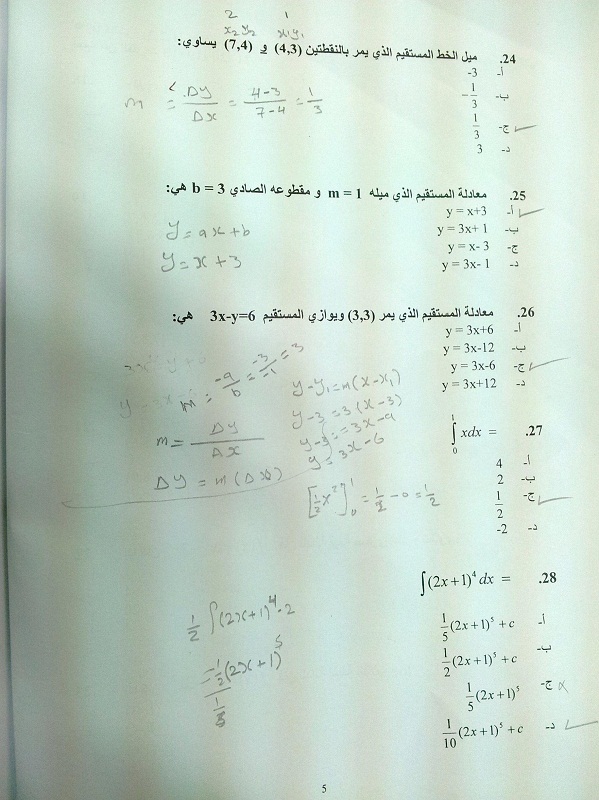 2 1
x₂y₂ x₁y₁
24. ميل الخط المستقيم الذي يمر بالنقطتين (4,3) و (7,4) يساوي:
أ- -3
ب- -1/3
ج- 1/3 ✓
د- 3
m = Δy/Δx = 4-3/7-4 = 1/3
25. معادلة المستقيم الذي ميله m = 1 و مقطوعه الصادي b = 3 هي:
أ- y = x+3 ✓
ب- y = 3x+ 1
ج- y = x- 3
د- y = 3x- 1
y = ax+b
y = x+3
26. معادلة المستقيم الذي يمر (3,3) ويوازي المستقيم 3x-y=6 هي:
أ- y = 3x+6
ب- y = 3x-12
ج- y = 3x-6 ✓
د- y = 3x+12
m = -a/b = -3/-1 = 3
y-y₁=m(x-x₁)
y-3=3(x-3)
y-3=3x-9
y=3x-6
m = Δy/Δx
Δy = m(Δx)
27. ∫₀¹ xdx =
أ- 4
ب- 2
ج- 1/2 ✓
د- -2
[1/2 x²]₀¹ = 1/2 - 0 = 1/2
28. ∫(2x+1)⁴ dx =
أ- 1/5 (2x+1)⁵ + c
ب- 1/2 (2x+1)⁵ + c
ج- 1/5 (2x+1)⁵ x
د- 1/10 (2x+1)⁵ + c ✓
1/2 ∫(2x+1)⁴·2
1/2 (2x+1)⁵
5